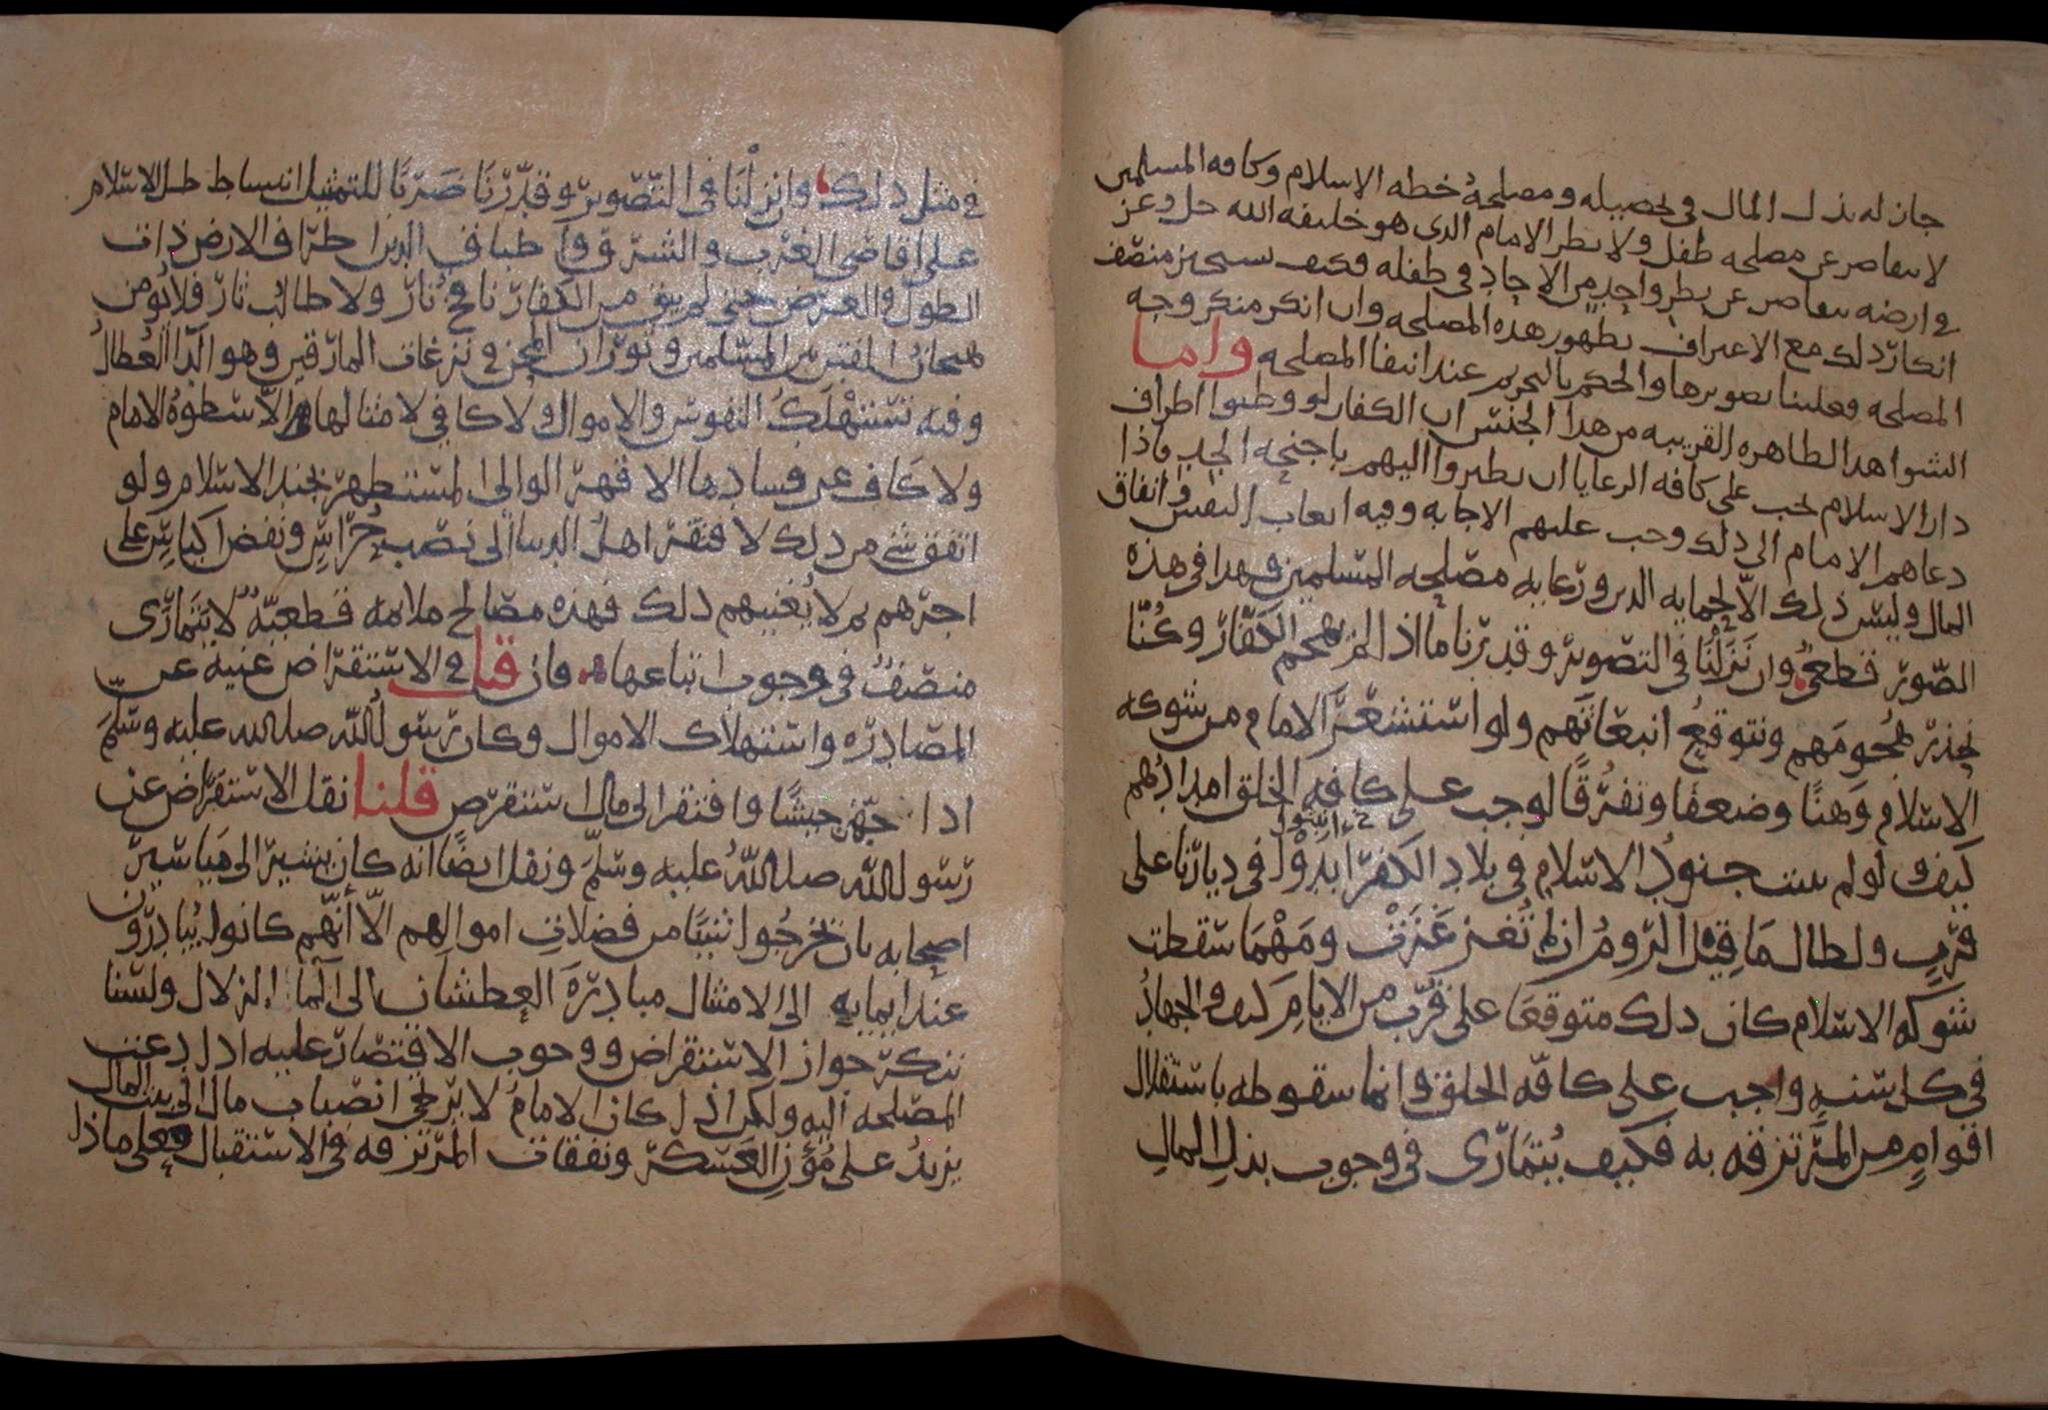 جاز له بذل المال في تحصيله ومصلحة خطه الاسلام وكافه المسلمين
لا تتقاصر عن مصلحه طفل ولا نظر الامام الذي هو خليفه الله جل وعز
في ارضه يتقاصر عن نظر واحد من الاحاد في طفله فكيف يستجيز منصف
انكار ذلك مع الاعتراف بظهور هذه المصلحه وان انكر منكر وجه
المصلحه فعلينا تصويرها والحكم بالتحريم عند انتفا المصلحه واما
الشواهد الظاهره القريبه من هذا الجنس ان الكفار لو وطئوا اطراف
دار الاسلام يجب على كافه الرعايا ان يطيروا اليهم باجنحه الجد فاذا
دعاهم الامام الى ذلك وجب عليهم الاجابه وفيه اتعاب النفس وانفاق
المال وليس ذلك الا لحمايه الدين ورعايه مصلحه المسلمين فهذا في هذه
الصور قطعي وان نزلنا في التصوير وقدرنا ما اذا لم يهجم الكفار وكنا
نحذر هجومهم ونتوقع انبعاثهم ولو استشعر الامام من شوكه
الاسلام وهنا وضعفا وتفرقا لوجب على كافه الخلق امدادهم
كيف ولو لم تبث جنود الاسلام في بلاد الكفر ابتدوا في ديارنا على
قرب ولطال ما قيل الروم ان لم تغز غزت ومهما سقطت
شوكه الاسلام كان ذلك متوقعا على قرب من الايام كيف والجهاد
في كل سنه واجب على كافه الخلق وانما سقوطه باستقلال
اقوام من المرتزقه به فكيف يتمارى في وجوب بذل المال
في مثل ذلك وان نزلنا في التصوير وقدرنا ضربا للتمثيل انبساط ظل الاسلام
على اقاصي الغرب والشرق واطباق الدين اطراف الارض ذات
الطول والعرض حتى لم يبق من الكفار نافخ نار ولا طالب ثار فلا يؤمن
هيجان الفتن بين المسلمين وثوران المحن في نزغات المارقين وهو الدا العضال
وفيه تستهلك النفوس والاموال ولا كافي لامثالها الا سطوة الامام
ولا كاف عن فسادها الا قهر الوالي المستظهر بجند الاسلام ولو
اتفق شي من ذلك لافتقر اهل الدنيا الى نصب حراس ونفض اكياس على
اجرهم ثم لا يغنيهم ذلك فهذه مصالح ملايمه قطعية لا يتمارى
منصف في وجوب اتباعها فان قيل في الاستقراض غنيه عن
المصادره واستهلاك الاموال وكان رسول الله صلى الله عليه وسلم
اذا جهز جيشا وافتقر الى مال استقرض قلنا نقل الاستقراض عن
رسول الله صلى الله عليه وسلم ونقل ايضا انه كان يشير الى مياسير
اصحابه بان يخرجوا شيئا من فضلات اموالهم الا انهم كانوا يبادرون
عند ايمايه الى الامتثال مبادرة العطشان الى الما الزلال ولسنا
ننكر جواز الاستقراض ووجوب الاقتصار عليه اذا دعت
المصلحه اليه ولكن اذا كان الامام لا يرتجي انصباب مال الى بيت المال
يزيد على مؤن العسكر ونفقات المرتزقه في الاستقبال فعلى ماذا